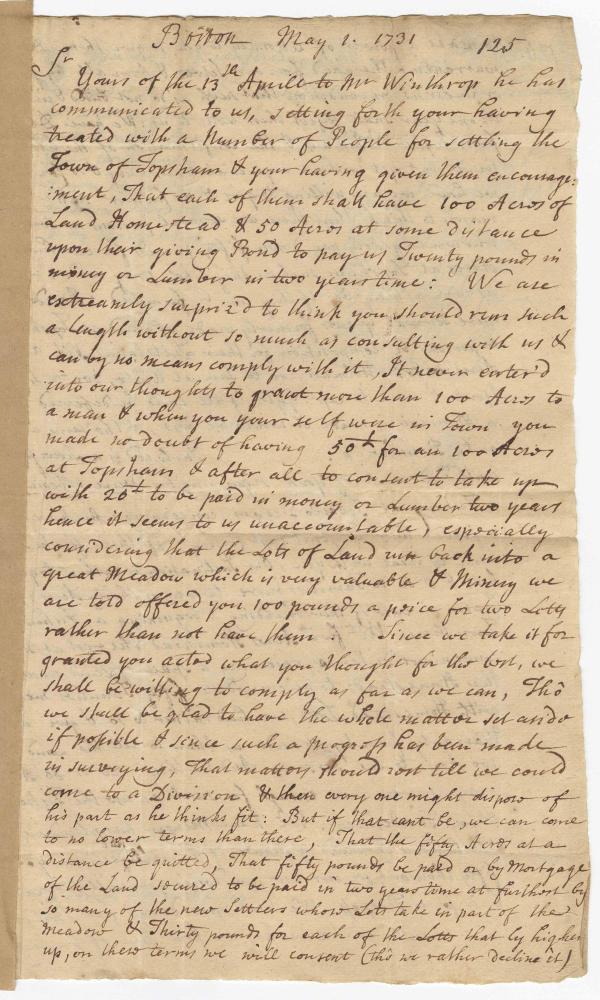 Boston May 1. 1731 125
Sr
Yours of the 13th Aprill to Mr Winthrop he has
communicated to us, setting forth your having
treated with a Number of People for settling the
Town of Topsham & your having given them encourage:
:ment, That each of them shall have 100 Acres of
Land Homestead & 50 Acres at some distance
upon their giving Bond to pay us Twenty pounds in
money or Lumber in two years time: We are
extreamly surpriz'd to think you should run such
a length without so much as consulting with us &
can by no means comply with it, It never enter'd
into our thoughts to grant more than 100 Acres to
a man & when you your self were in Town you
made no doubt of having 50£ for an 100 Acres
at Topsham & after all to consent to take up
with 20£ to be paid in money or Lumber two years
hence it seems to us unaccountable, especially
considering that the Lots of Land run back into a
great Meadow which is very valuable & Minery we
are told offered you 100 pounds a peice for two Lotts
rather than not have them: Since we take it for
granted you acted what you thought for the best, we
shall be willing to comply as far as we can, Tho
we shall be glad to have the whole matter set aside
if possible & since such a progress has been made
in surveying, That matters should rest till we could
come to a Division & then every one might dispose of
his part as he thinks fit: But if that cant be, we can come
to no lower terms than these, That the fifty Acres at a
distance be quitted, That fifty pounds be paid or by Mortgage
of the Land secured to be paid in two years time at furthest by
so many of the new Settlers whose Lots take in part of the
Meadow & Thirty pounds for each of the Lotts that ly higher
up, on these terms we will consent (tho we rather decline it)